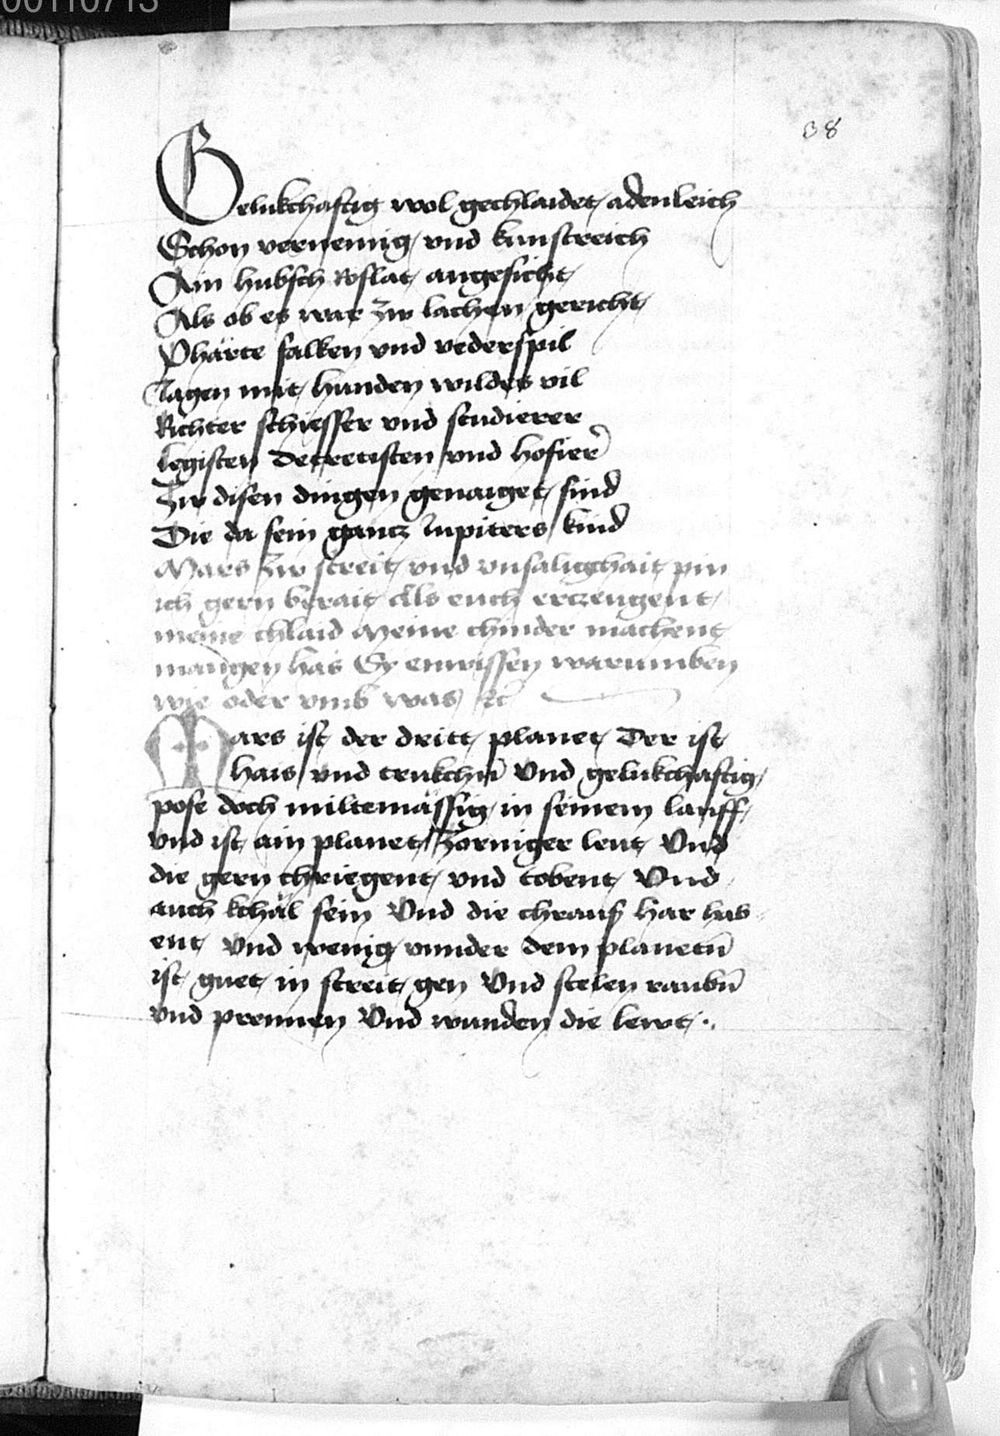 00110713
38
Gelukchaftig wol gechlaidet adenleich
Schon vernemig vnd kunstreich
Ain hubsch Roslat angesicht
Als ob es war zw lachen gericht
Phärte falken vnd vederspil
Jagen mit hunden wildes vil
Richter schiesser vnd studierer
legisten decretisten vnd hofier̄
Zw disen dingen genaiget sind
Die da sein gancz Jupiters kind
Mars zw streit vnd vnsaligchait pin
ich gern berait Als euch erczeugent
meine chlaid Meine chinder machent
mangen has Sy enwissen warumben
wie oder vmb was
Mars ist der dritt planet Der ist
hais vnd trukchn̄ Vnd gelukchaftig
pose doch miltemässig in seinem lauff
vnd ist ain planet zorniger leut Vnd
die gern chriegent vnd tobent Vnd
auch kchäl sein Vnd die chraus har hab
ent Vnd wenig vnnder dem planetn̄
ist guet in streit gen Vnd stelen raubn̄
vnd prennen Vnd wunden die lewt